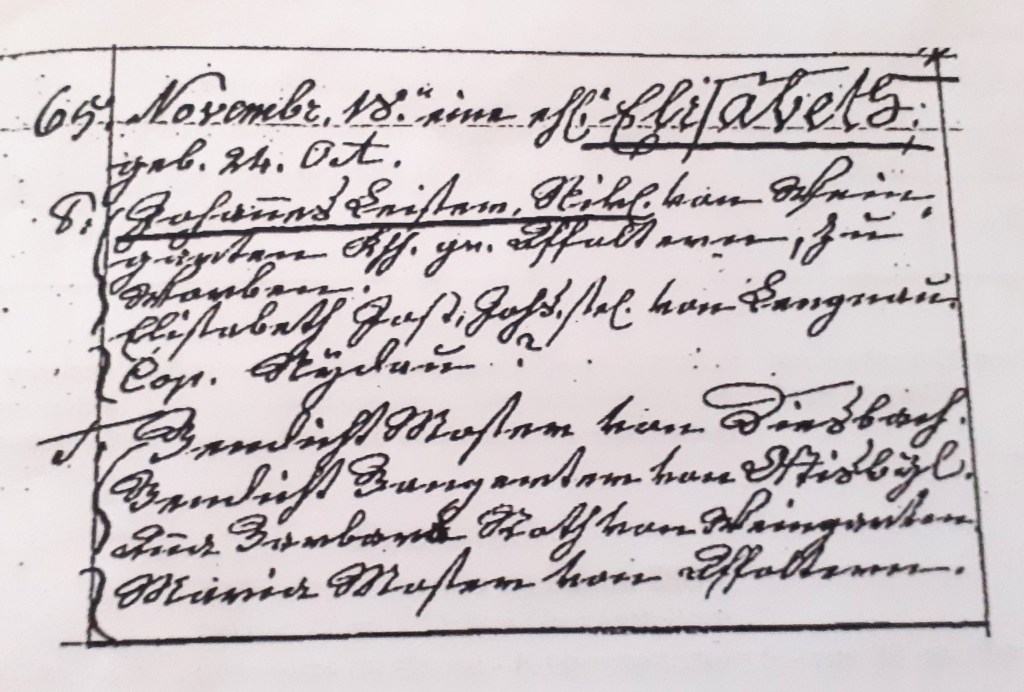 65. Novembr. 18.ᵗ eine ehl. Elisabeth,
geb. 24. Oct.
Johannes Leister, Nikl. von Wein,
garten Kh. gr. Affoltern, zu
Worben.
Elisabeth Jost, Johs. sel. von Lengnau.
Cop. Nÿdau ?
T. Bendicht Moser von Diesbach.
Bendicht Bangerter von Ottisbÿl.
Aña Barbara Roth von Weingarten
Maria Moser von Affoltern.